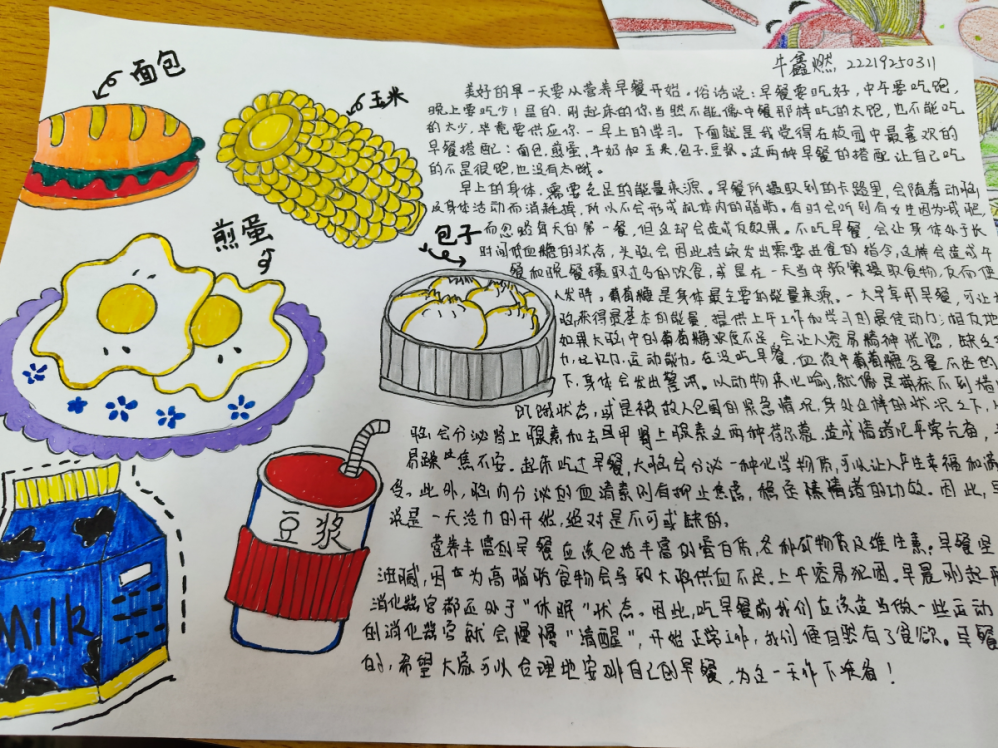 牛鑫燃 22219250311
面包
玉米
煎蛋
包子
豆浆
Milk
美好的早一天要从营养早餐开始。俗话说:早餐要吃好,中午要吃饱,
晚上要吃少!是的,刚起床的你当然不能像中餐那样吃的太饱,也不能吃
的太少,毕竟要供应你一早上的学习。下面就是我觉得在校园中最喜欢的
早餐搭配:面包、煎蛋、牛奶和玉米、包子、豆浆。这两种早餐的搭配让自己吃
的不是很饱,也没有太饿。
早上的身体,需要充足的能量来源。早餐所摄取到的卡路里,会随着动脑
及身体活动而消耗掉,所以不会形成肌体内的脂肪。有时会听到有女生因为减肥,
而忽略每天的第一餐,但这却会造成反效果。不吃早餐,会让身体处于长
时间低血糖的状态,大脑会因此持续发出需要进食的指令,这样会造成午
餐和晚餐摄取过多的饮食,或是在一天当中频繁摄取食物,反而使
人发胖。葡萄糖是身体最主要的能量来源。一大早享用早餐,可让大
脑获得最基本的能量,提供上午工作和学习的最佳动力;相反地
如果大脑中的葡萄糖浓度不足,会让人容易精神恍惚,缺乏
力、记忆力、运动能力。在没吃早餐,血液中葡萄糖含量不足的
下,身体会发出警讯。以动物来比喻,就像是
饥饿状态,或是被敌人包围的紧急情况,身处这样的状况之下,
脑会分泌肾上腺素和去甲肾上腺素这两种荷尔蒙,造成情绪比平常亢奋,
易躁或焦不安。起床吃过早餐,大脑会分泌一种化学物质,可以让人产生幸福和满
受。此外,脑内分泌的血清素则有抑止焦虑,稳定情绪的功效。因此,早
说是一天活力的开始,绝对是不可或缺的。
营养丰富的早餐应该包括丰富的蛋白质、各种矿物质及维生素。早餐坚
油腻,因为高脂肪食物会导致大脑供血不足,上午容易犯困。早晨刚起床
消化器官都还处于"休眠"状态。因此,吃早餐前我们应该适当做一些运动
的消化器官就会慢慢"清醒",开始正常工作,我们便自然有了食欲。早餐
的,希望大家可以合理地安排自己的早餐,为这一天作下准备!